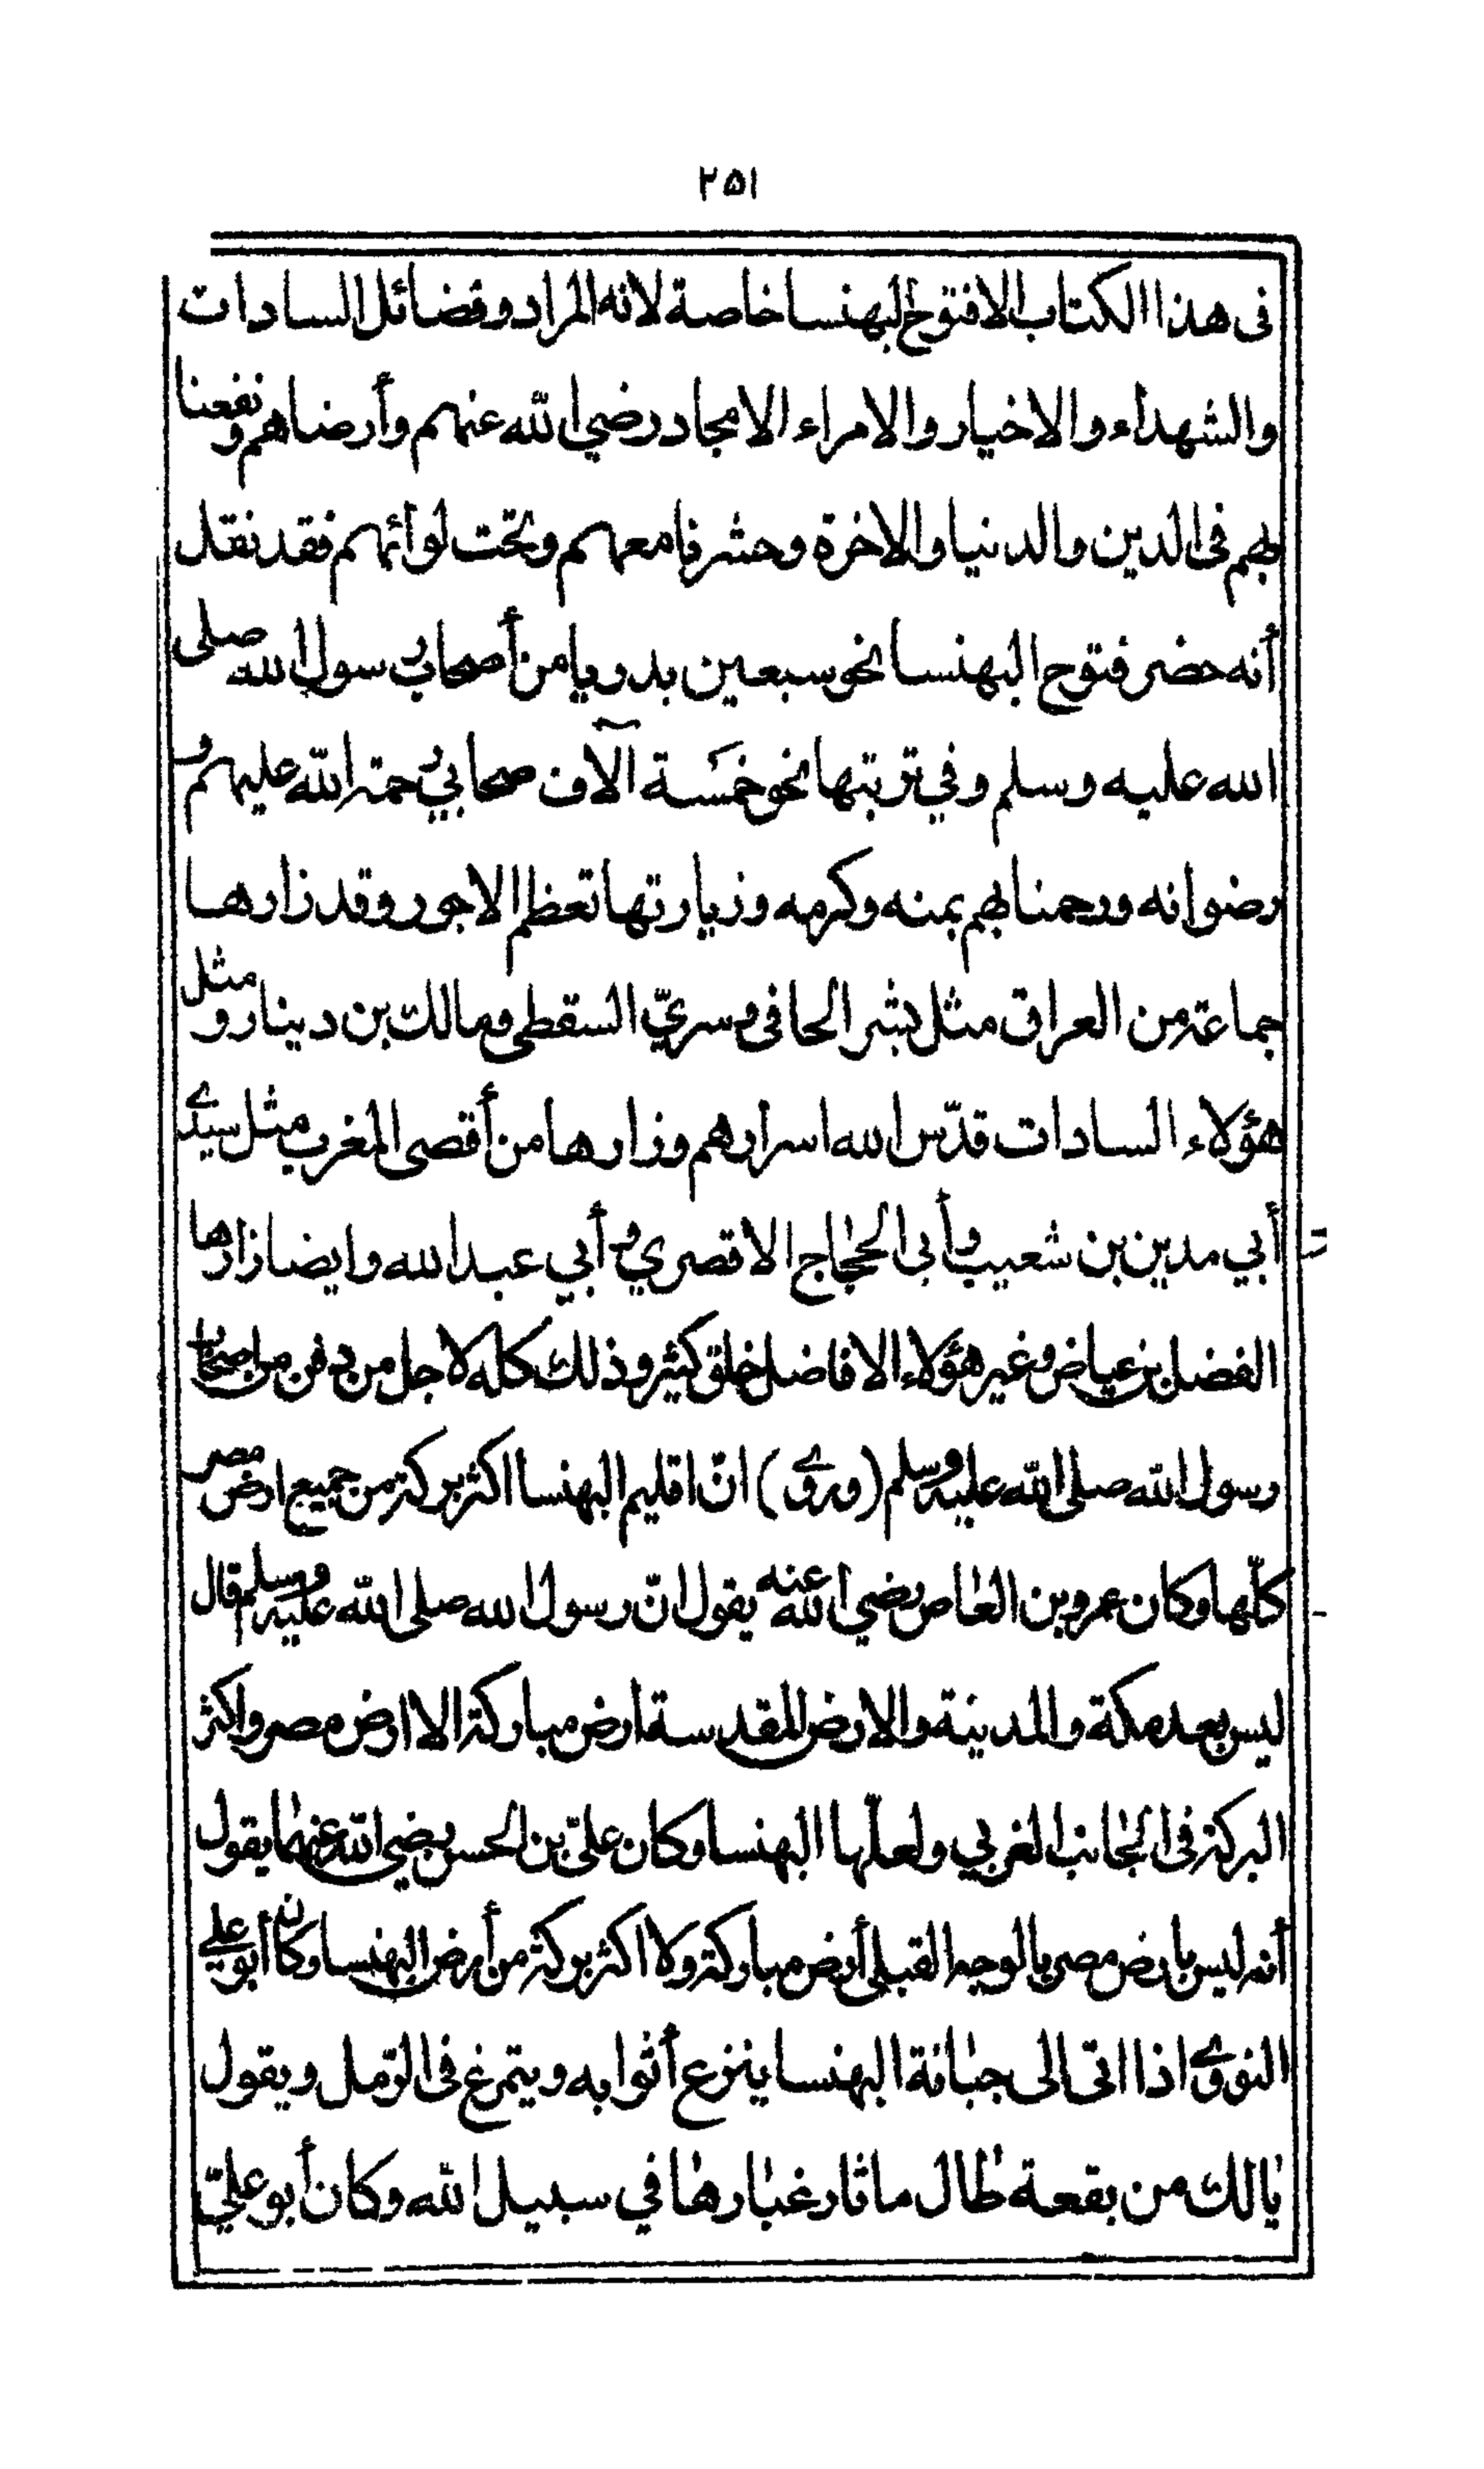 ٢٥١
فى هذا الكتاب الا فتوح البهنسا خاصة لانه المراد وفضائل السادات
والشهداء والاخيار والامراء الامجاد رضي الله عنهم وأرضاهم ونفعنا
بهم فى الدين والدنيا والاخرة وحشرنا معهم وتحت لوائهم فقد نقل
أنه حضر فتوح البهنسا نحو سبعين بدرويا من أصحاب رسول الله صلى
الله عليه وسلم وفي تربتها نحو خمسَة آلاف صحابي رحمة الله عليهم و
رضوانه ورحمنا بهم بمنه وكرمه وزيارتها تعظم الاجور وقد زارها
جماعة من العراق مثل بشر الحافى وسريّ السقطى ومالك بن دينار ومثل
هؤلاء السادات قدّس الله اسرارهم وزارها من أقصى المغرب مثل سيدي
أبي مدين بن شعيب وأبى الحجاج الاقصري وأبي عبد الله وايضا زارها
الفضل بن عياض وغير هؤلاء الافاضل خلق كثير وذلك كله لاجل من دفن من اصحاب
رسول الله صلى الله عليه وسلم (وروى) انّ اقليم البهنسا اكثر بركة من جميع ارض مصر
كلّها وكان عمرو بن العاص رضي الله عنه يقول انّ رسول الله صلى الله عليه وسلم قال
ليس بعد مكة والمدينة والارض المقدسة ارض مباركة الا ارض مصر واكثر
البركة فى الجانب الغربي ولعلّها البهنسا وكان علىّ بن الحسن رضي الله عنهما يقول
أنه ليس بارض مصر بالوجه القبلى أرض مباركة ولا اكثر بركة من أرض البهنسا وكان أبو علي
النووى اذا اتى الى جبانة البهنسا ينزع أثوابه ويتمرغ فى الرّمل ويقول
يالك من بقعة طال ما ثار غبارها في سبيل الله وكان أبو عليّ